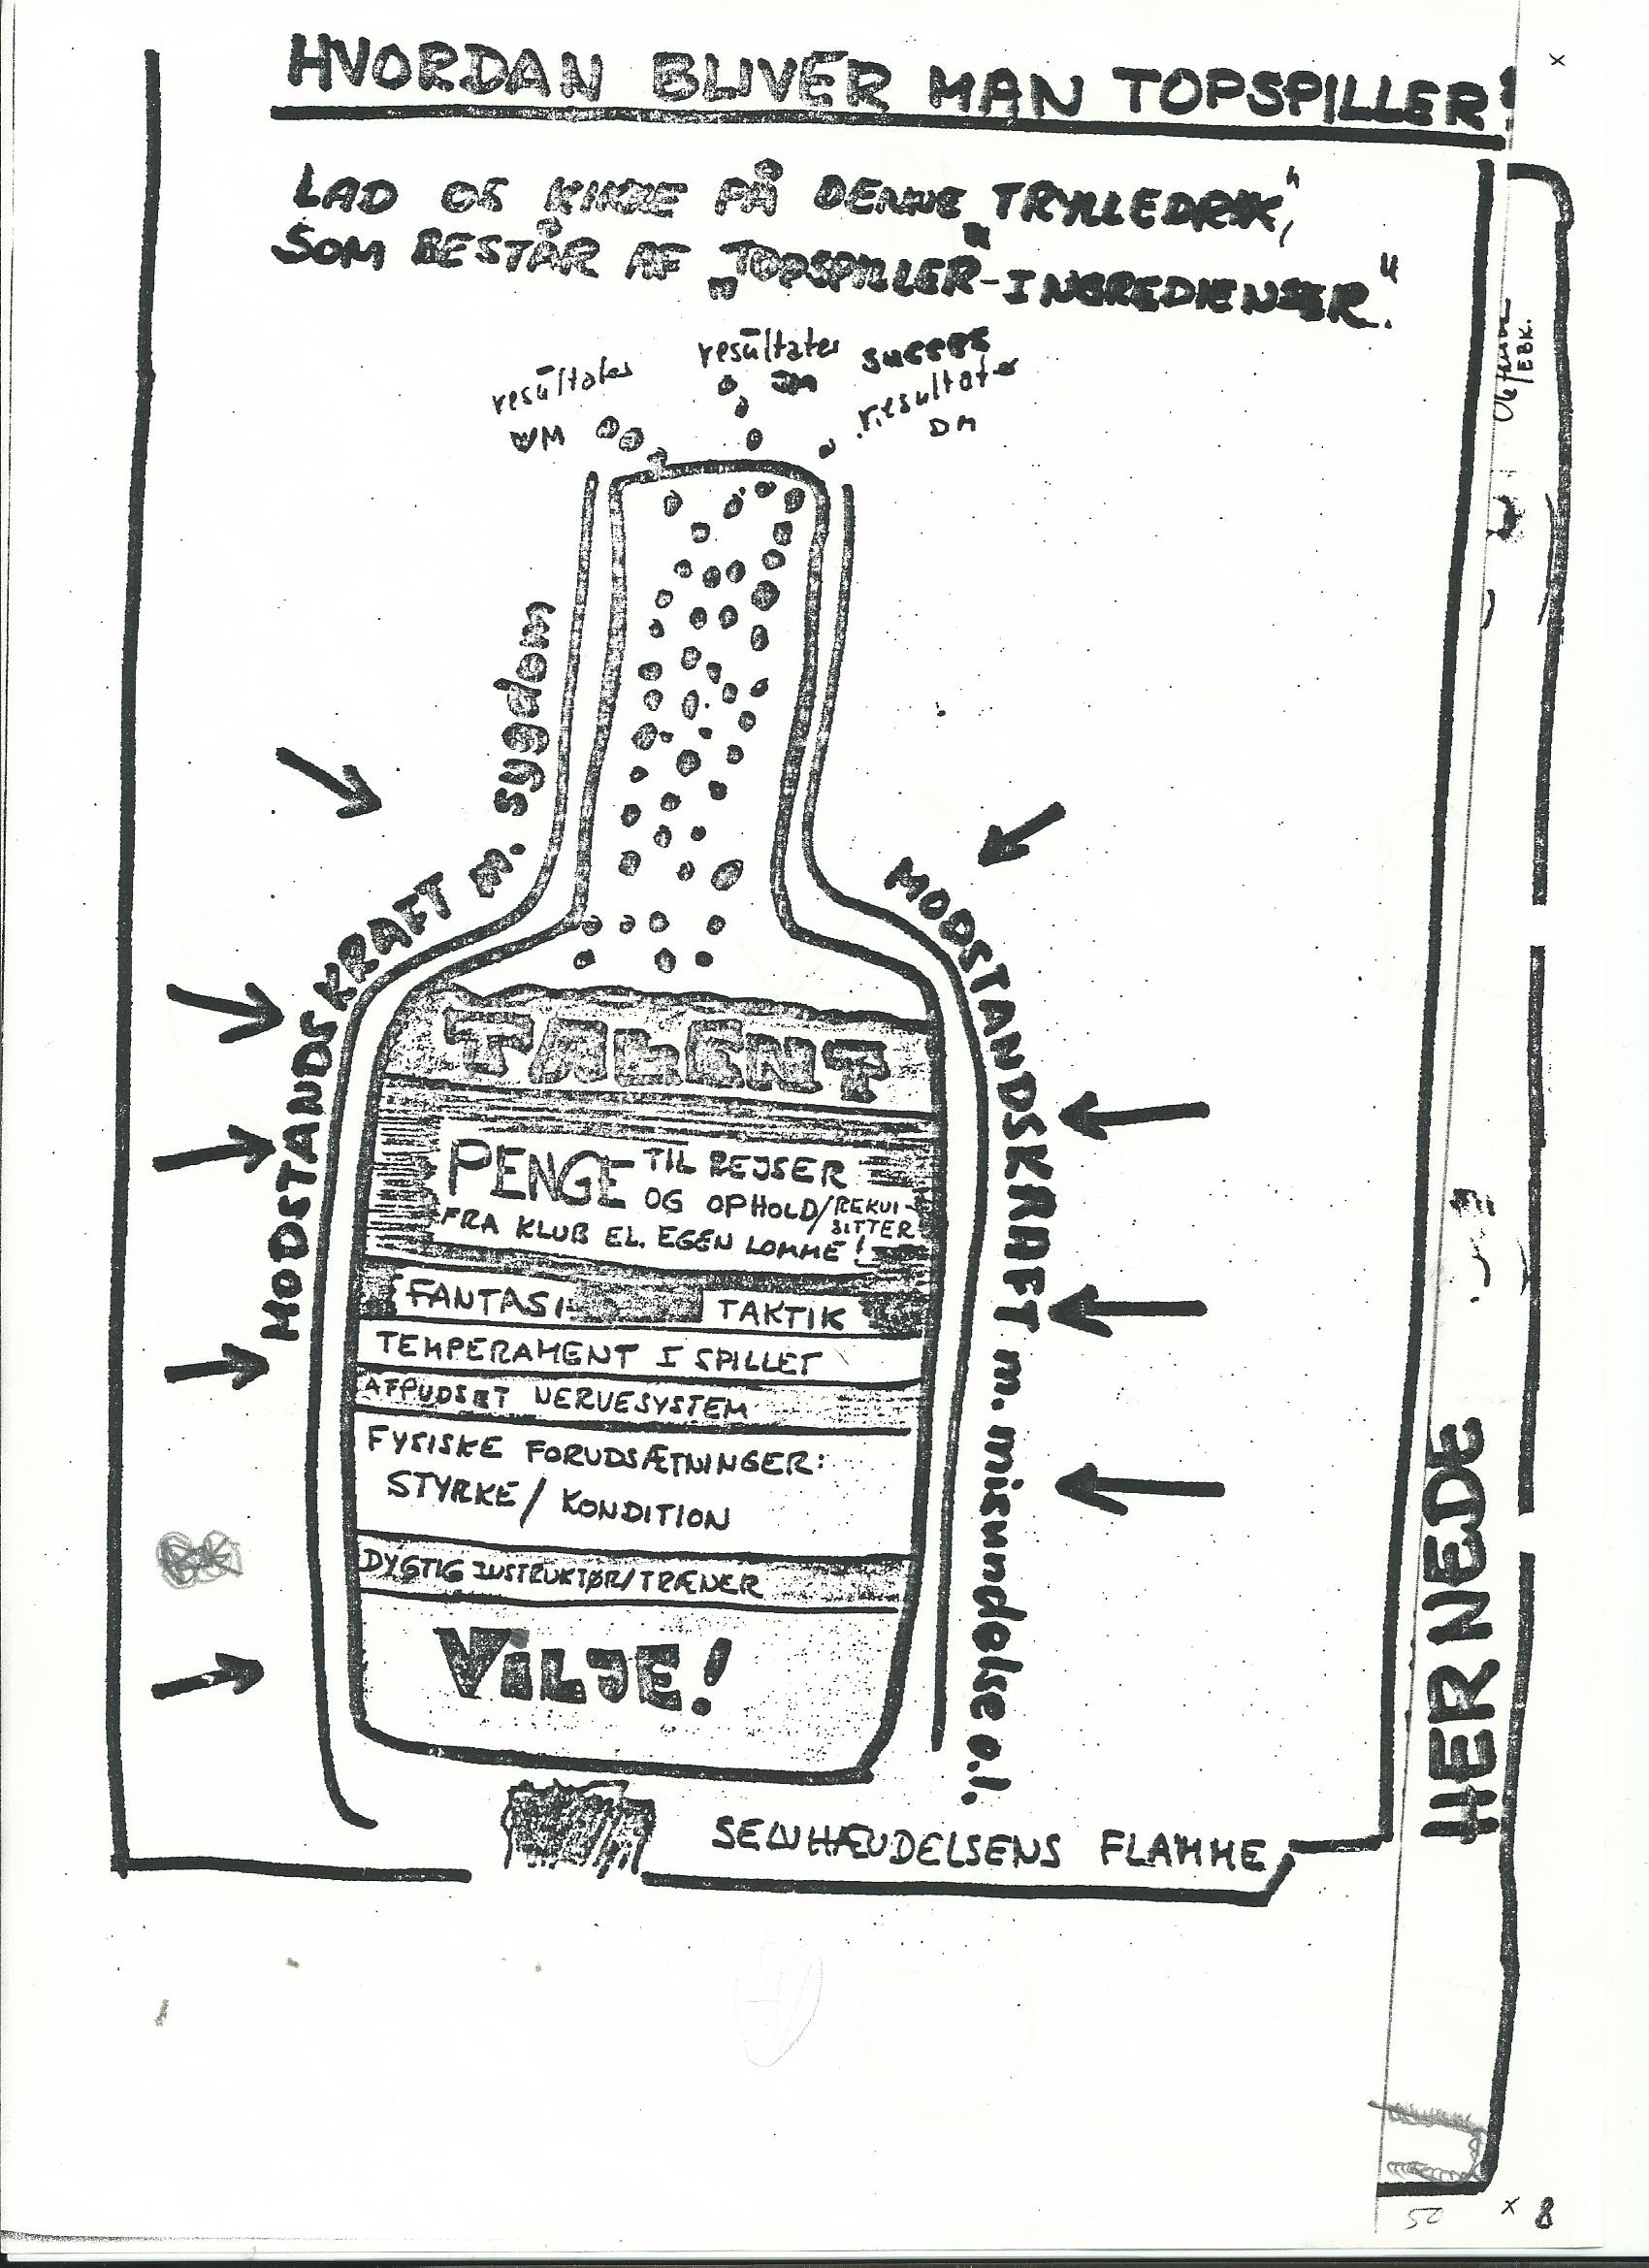 HVORDAN BLIVER MAN TOPSPILLER?
LAD OS KIKKE PÅ DENNE „TRYLLEDRIK“,
SOM BESTÅR AF „TOPSPILLER-INGREDIENSER.“
resultater
VM
resultater
succes
resultater
DM
MODSTANDSKRAFT m. sygdom
MODSTANDSKRAFT m. misundelse o.l.
TALENT
PENGE TIL REJSER
OG OPHOLD/REKVI-
SITTER
FRA KLUB EL. EGEN LOMME!
FANTASI TAKTIK
TEMPERAMENT I SPILLET
AFPUDSET NERVESYSTEM
FYSISKE FORUDSÆTNINGER:
STYRKE/KONDITION
DYGTIG INSTRUKTØR/TRÆNER
VILJE!
SELVHÆVDELSENS FLAMME
/EBK.
HER NEDE
50
x 8
x